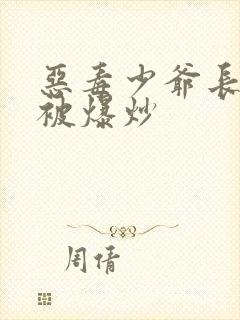 惡毒少爺長
被爆炒
周倩